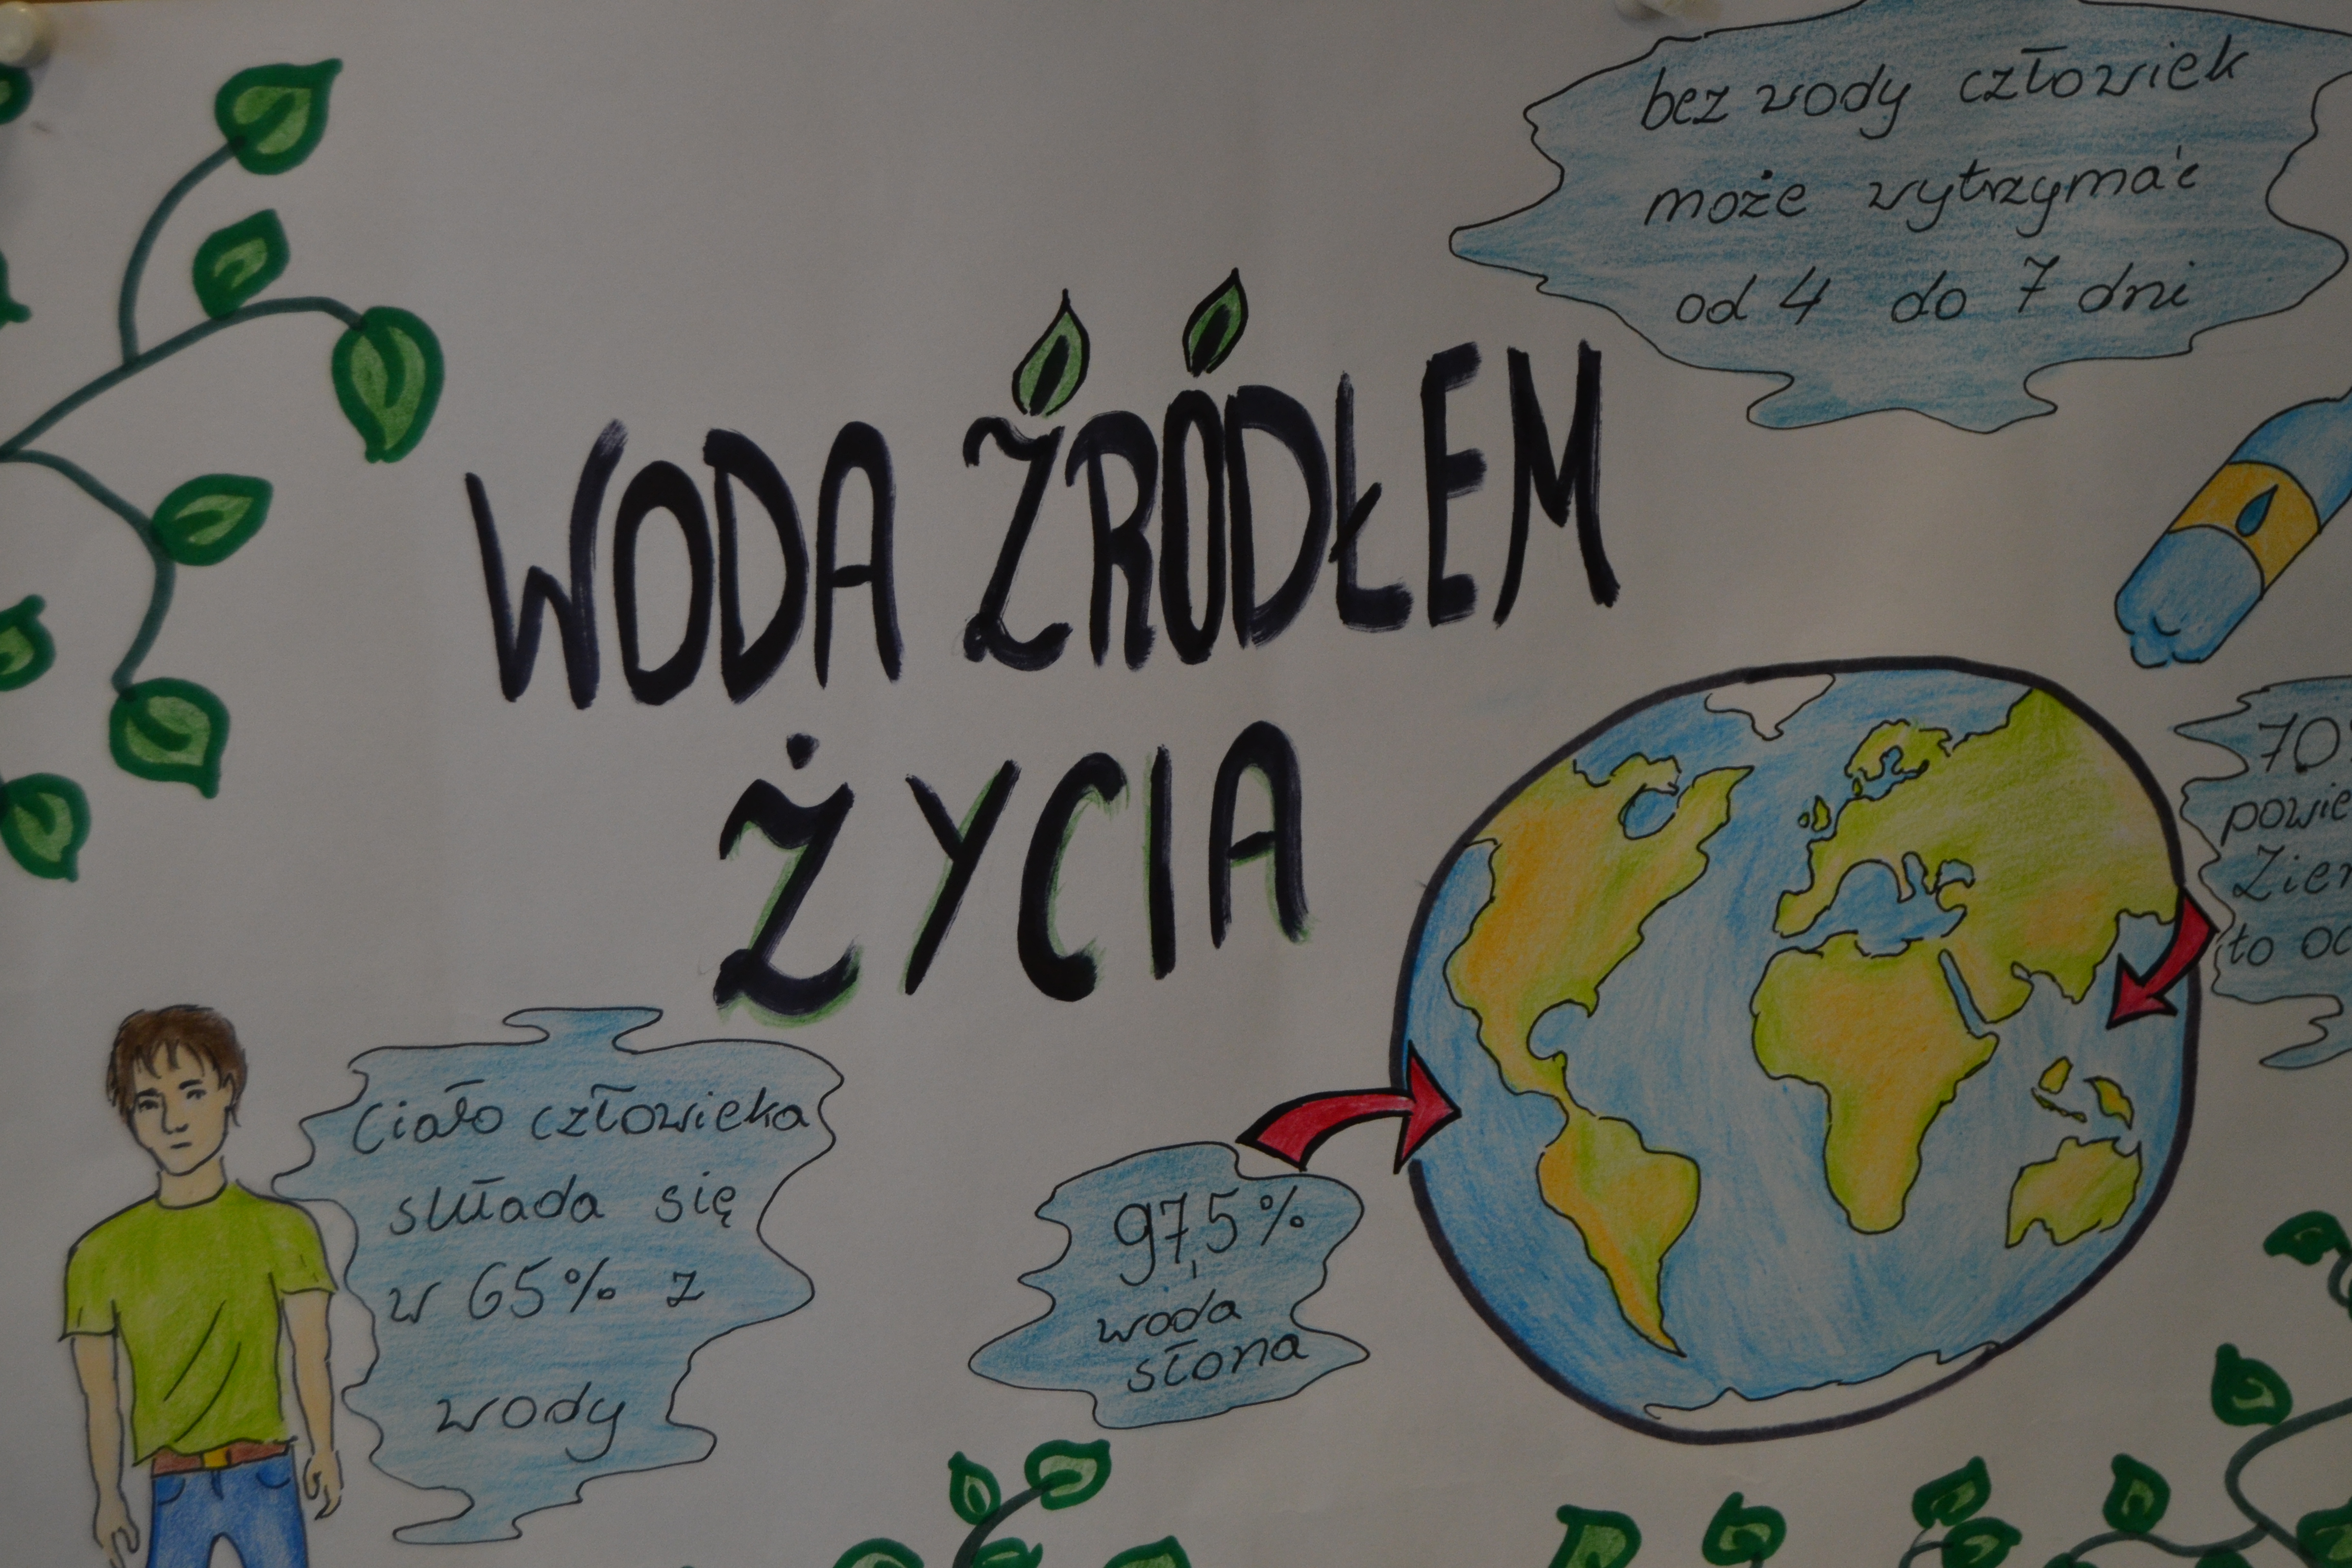 bez wody człowiek
może wytrzymać
od 4 do 7 dni
WODA ŹRÓDŁEM
ŻYCIA
70%
to
Ciało człowieka
składa się
w 65% z
wody
97,5%
woda
słona